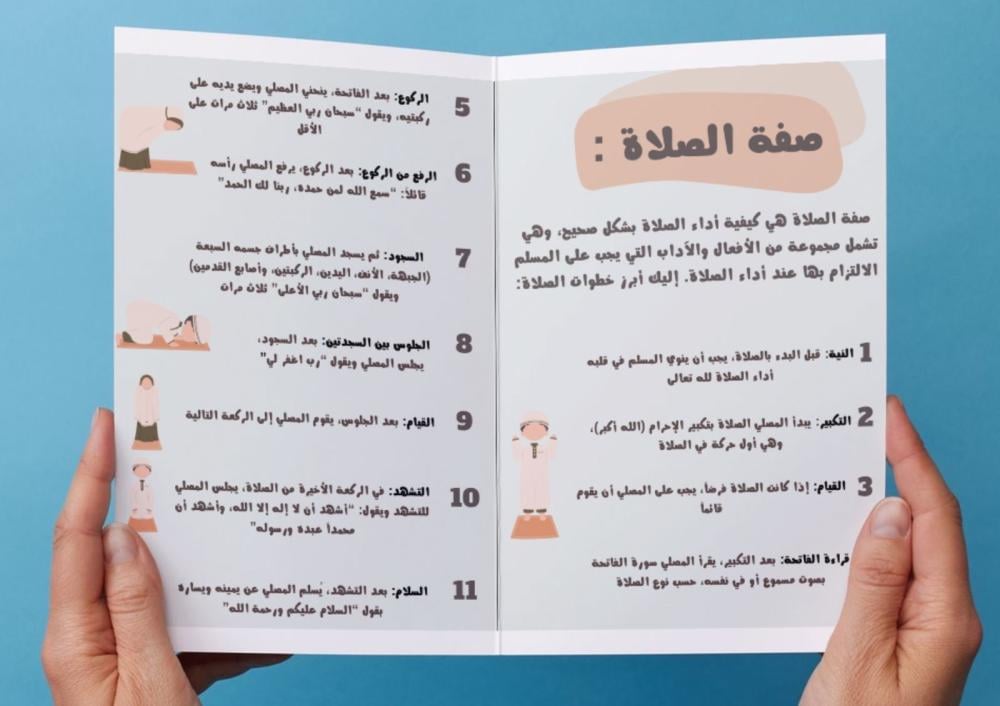 صفة الصلاة :
صفة الصلاة هي كيفية أداء الصلاة بشكل صحيح، وهي
تشمل مجموعة من الأفعال والآداب التي يجب على المسلم
الالتزام بها عند أداء الصلاة. إليك أبرز خطوات الصلاة:
1 النية: قبل البدء بالصلاة، يجب أن ينوي المسلم في قلبه
أداء الصلاة لله تعالى
2 التكبير: يبدأ المصلي الصلاة بتكبير الإحرام (الله أكبر)،
وهي أول حركة في الصلاة
3 القيام: إذا كانت الصلاة فرضاً، يجب على المصلي أن يقوم
قائماً
قراءة الفاتحة: بعد التكبير، يقرأ المصلي سورة الفاتحة
بصوت مسموع أو في نفسه، حسب نوع الصلاة
5 الركوع: بعد الفاتحة، ينحني المصلي ويضع يديه على
ركبتيه، ويقول "سبحان ربي العظيم" ثلاث مرات على
الأقل
6 الرفع من الركوع: بعد الركوع، يرفع المصلي رأسه
قائلاً: "سمع الله لمن حمده، ربنا لك الحمد"
7 السجود: ثم يسجد المصلي بأطراف جسمه السبعة
(الجبهة، الأنف، اليدين، الركبتين، وأصابع القدمين)
ويقول "سبحان ربي الأعلى" ثلاث مرات
8 الجلوس بين السجدتين: بعد السجود،
يجلس المصلي ويقول "رب اغفر لي"
9 القيام: بعد الجلوس، يقوم المصلي إلى الركعة التالية
10 التشهد: في الركعة الأخيرة من الصلاة، يجلس المصلي
للتشهد ويقول: "أشهد أن لا إله إلا الله، وأشهد أن
محمداً عبده ورسوله"
11 السلام: بعد التشهد، يُسلم المصلي عن يمينه ويساره
بقول "السلام عليكم ورحمة الله"